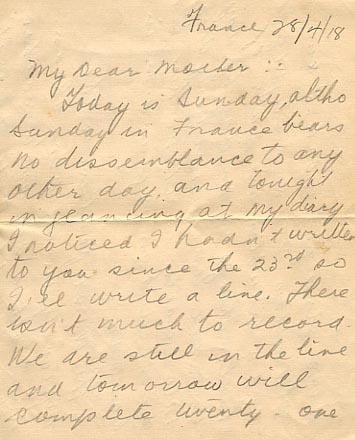 France 28/4/18
My Dear Mother :-
Today is Sunday, altho
Sunday in France bears
no dissemblance to any
other day, and tonight
in glancing at my diary
I noticed I hadn't written
to you since the 23rd so
I'll write a line. There
isn't much to record.
We are still in the line
and tomorrow will
complete twenty-one